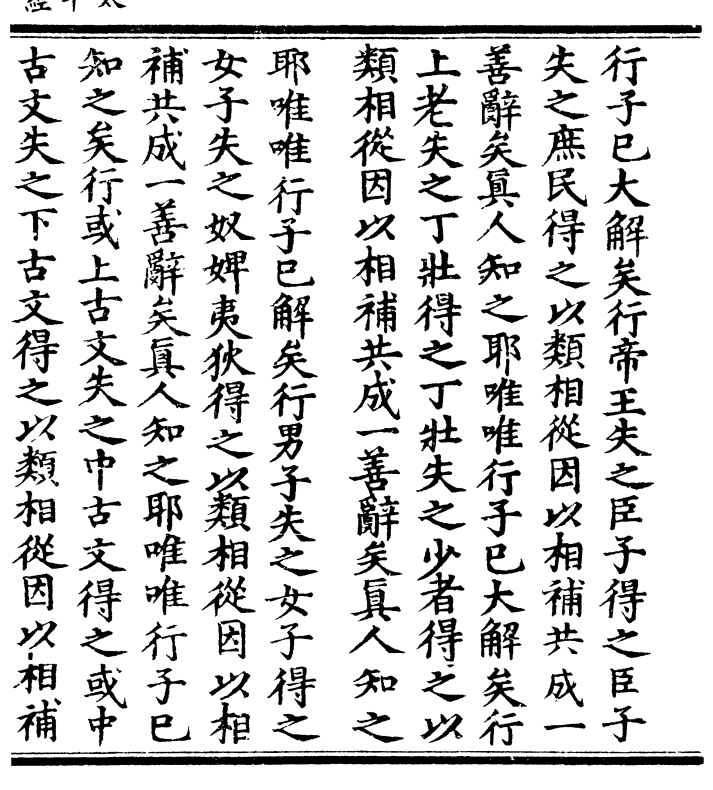 行子已大解矣行帝王失之臣子得之臣子
失之庶民得之以類相從因以相補共成一
善辭矣眞人知之耶唯唯行子已大解矣行
上老失之丁壯得之丁壯失之少者得之以
類相從因以相補共成一善辭矣眞人知之
耶唯唯行子已解矣行男子失之女子得之
女子失之奴婢夷狄得之以類相從因以相
補共成一善辭矣眞人知之耶唯唯行子已
知之矣行或上古文失之中古文得之或中
古文失之下古文得之以類相從因以相補